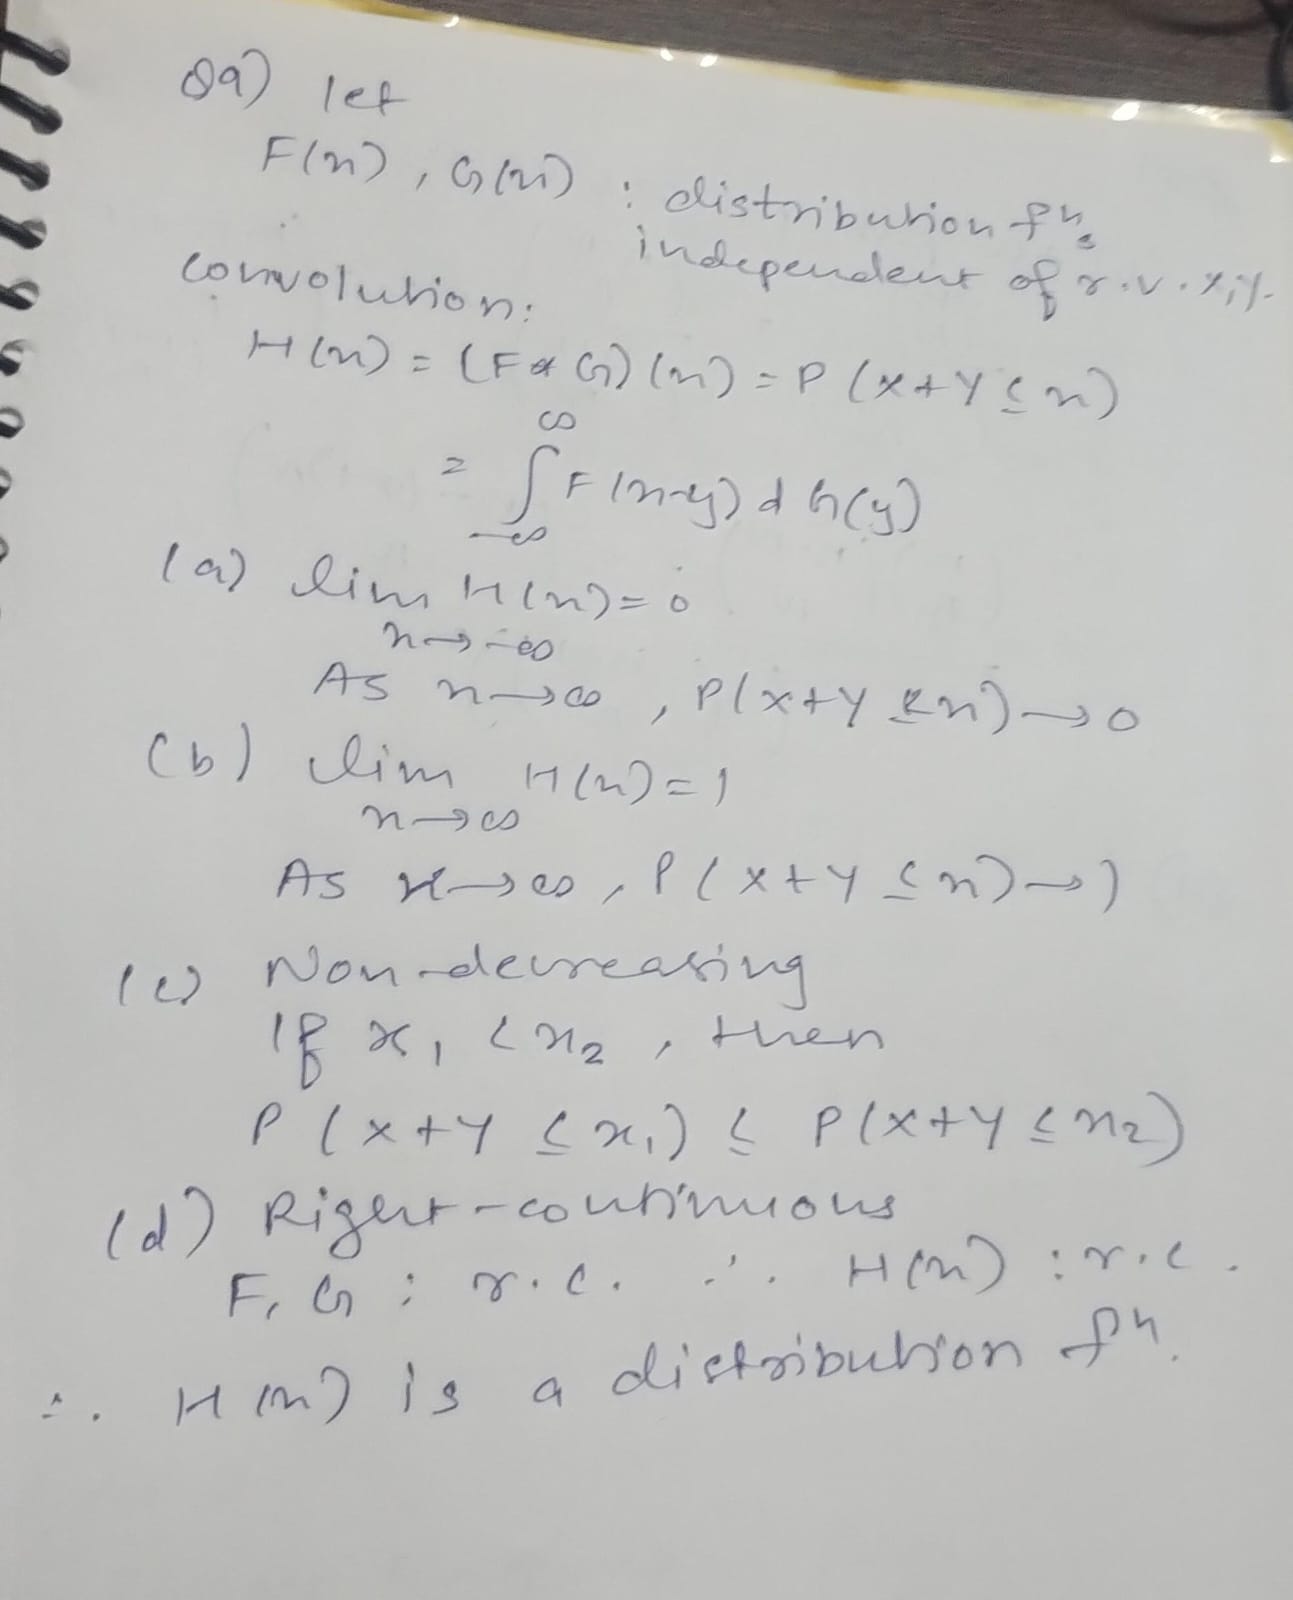 Q9) let
F(x), G(x) : distribution fns
independent of r.v. X, Y.
convolution:
H(x) = (F * G)(x) = P(X+Y ≤ x)
= ∫_{-∞}^{∞} F(x-y) dG(y)
(a) lim H(x) = 0
x → -∞
As x → ∞, P(X+Y ≤ x) → 0
(b) lim H(x) = 1
x → ∞
As x → ∞, P(X+Y ≤ x) → 1
(c) Non-decreasing
If x₁ < x₂, then
P(X+Y ≤ x₁) ≤ P(X+Y ≤ x₂)
(d) Right-continuous
F, G : r.c. ∴ H(x) : r.c.
∴ H(x) is a distribution fn.